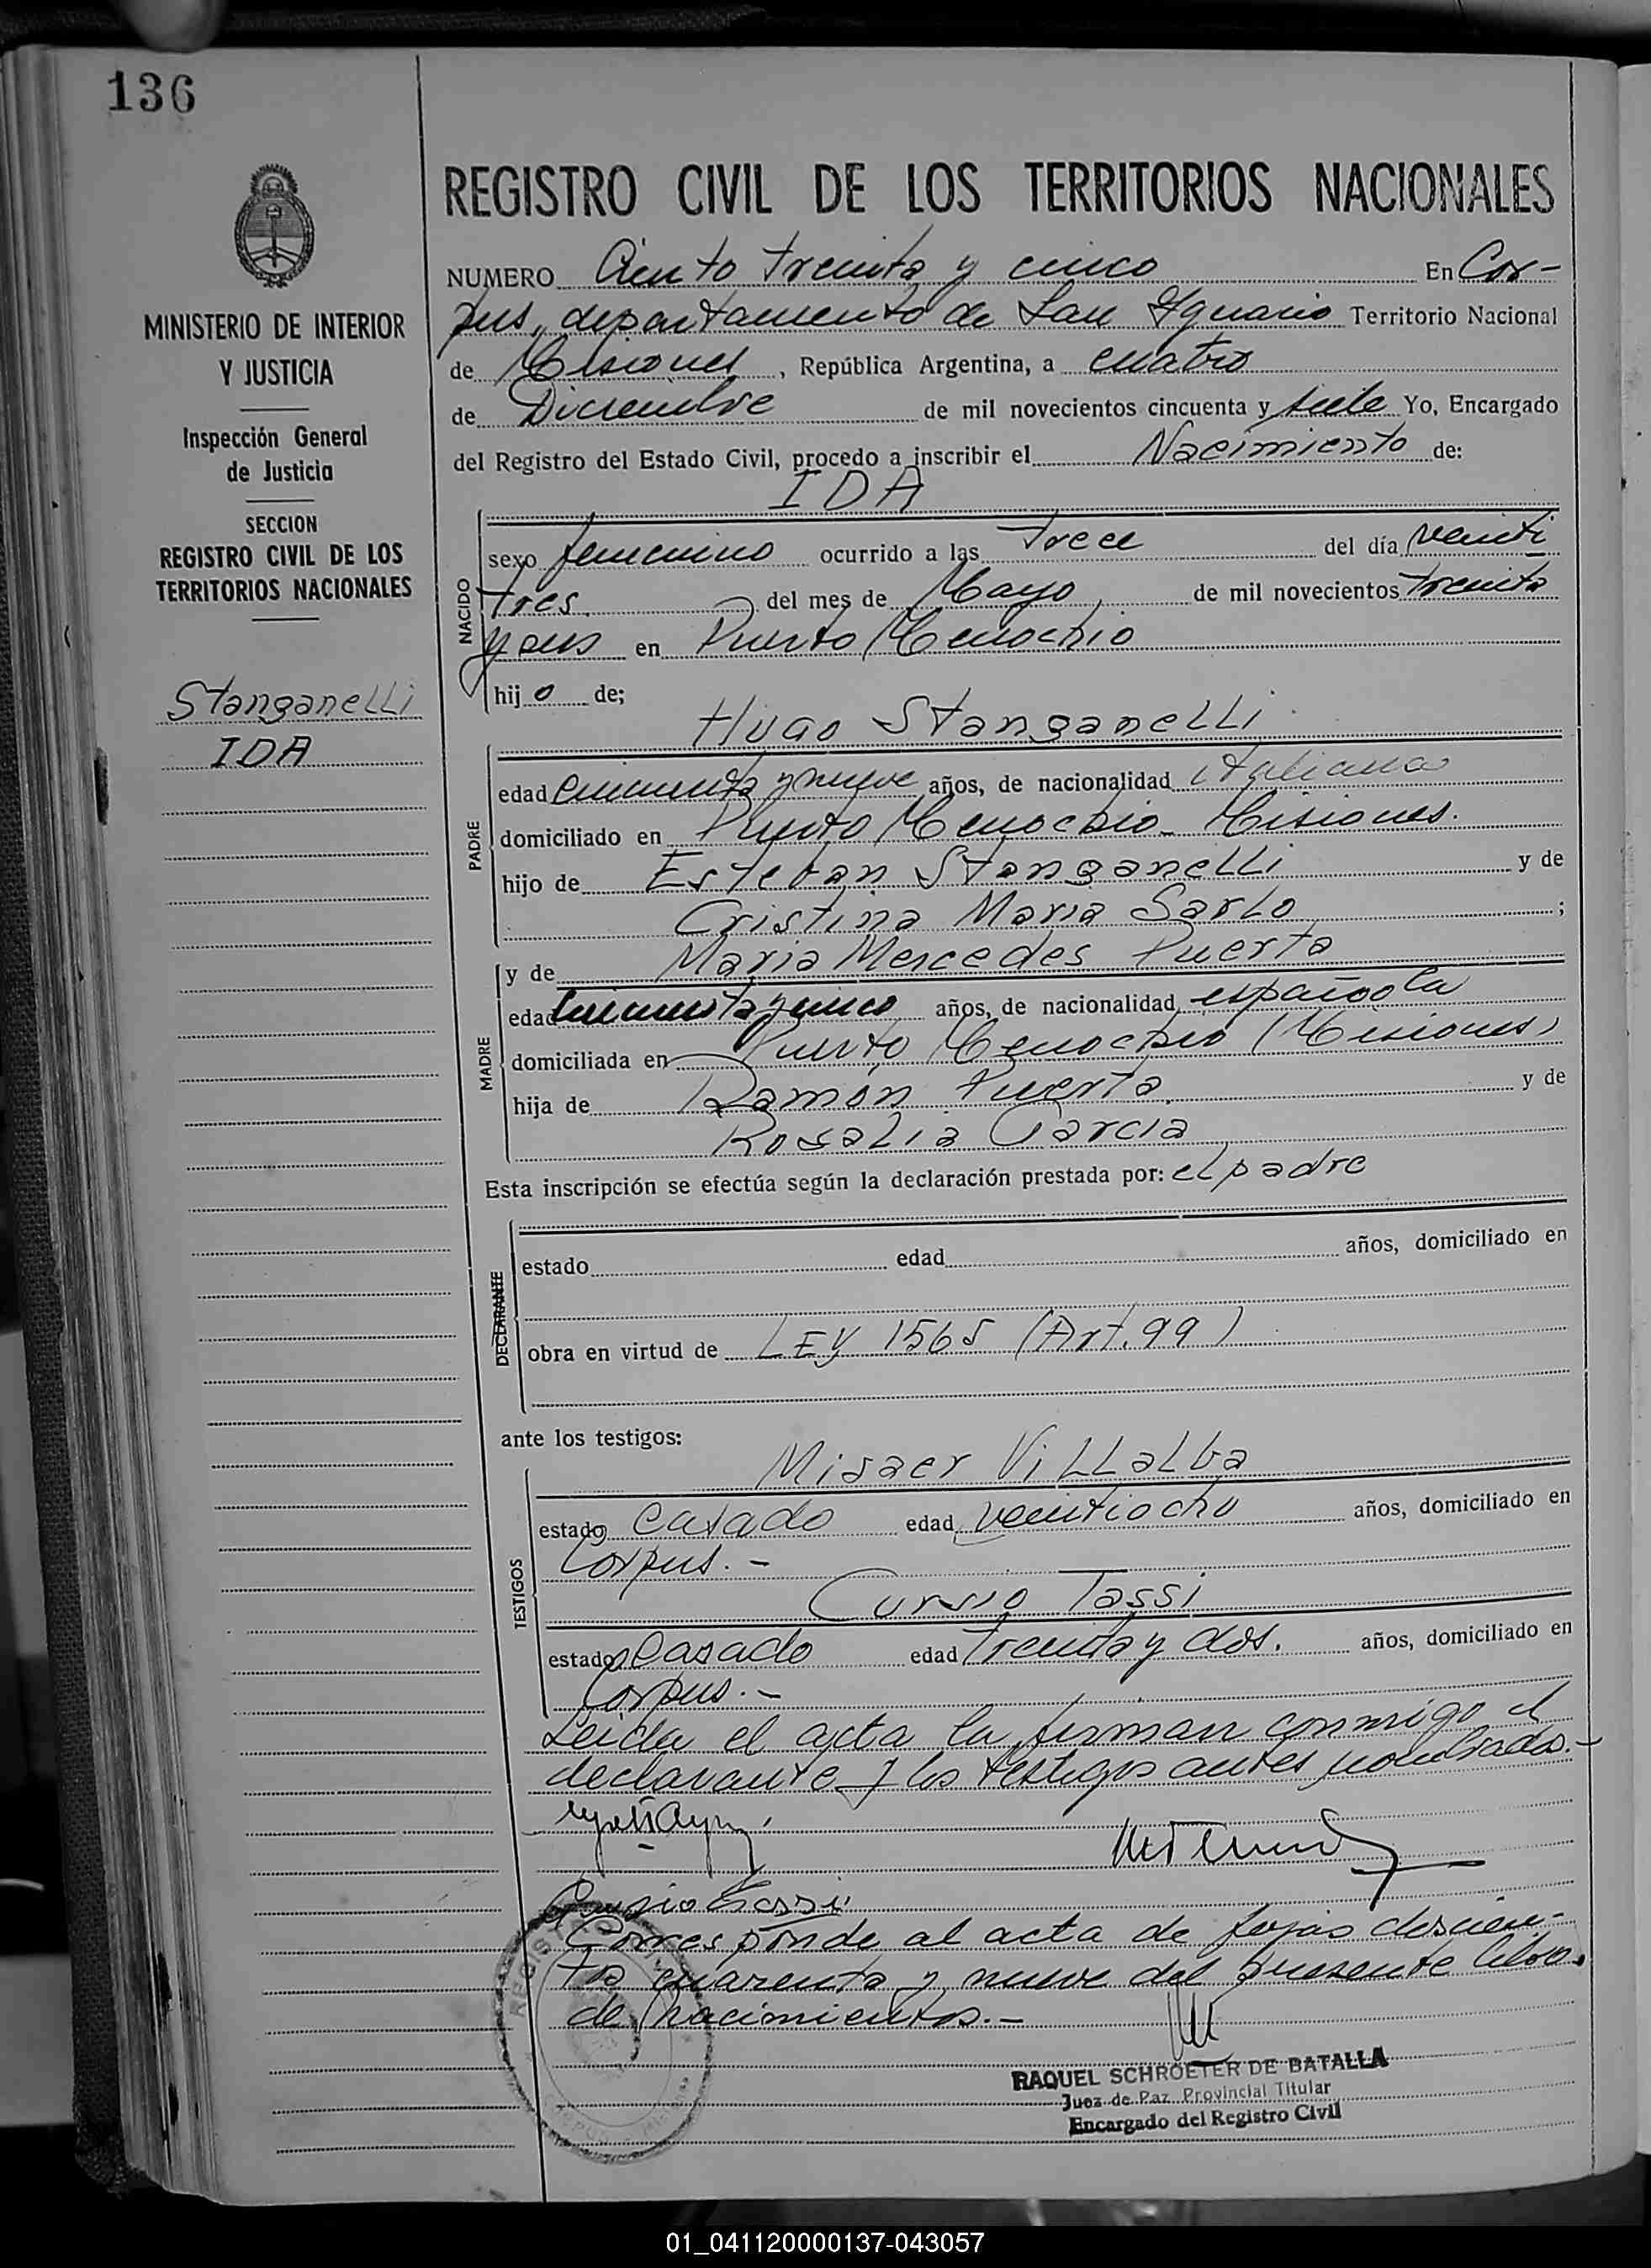 136
REGISTRO CIVIL DE LOS TERRITORIOS NACIONALES
MINISTERIO DE INTERIOR
Y JUSTICIA
Inspección General
de Justicia
SECCION
REGISTRO CIVIL DE LOS
TERRITORIOS NACIONALES
Stanganelli
IDA
NUMERO Ciento treinta y cinco En Cor-
pus, departamento de San Ignacio Territorio Nacional
de Misiones, República Argentina, a cuatro
de Diciembre de mil novecientos cincuenta y siete Yo, Encargado
del Registro del Estado Civil, procedo a inscribir el Nacimiento de:
IDA
NACIDO
sexo femenino ocurrido a las trece del día veinti
tres del mes de Mayo de mil novecientos treinta
y seis en Puerto Menochio
hijo de;
Hugo Stanganelli
PADRE
edad cincuenta y nueve años, de nacionalidad italiana
domiciliado en Puerto Menochio Misiones.
hijo de Esteban Stanganelli y de
Cristina Maria Sarlo ;
MADRE
y de Maria Mercedes Puerta
edad cincuenta y cinco años, de nacionalidad española
domiciliada en Puerto Menochio (Misiones)
hija de Ramón Puerta y de
Rosalia Garcia
Esta inscripción se efectúa según la declaración prestada por: el padre
DECLARANTE
estado edad años, domiciliado en
obra en virtud de LEY 1565 (Art. 99)
ante los testigos:
TESTIGOS
Misaer Villalba
estado Casado edad veintiocho años, domiciliado en
Corpus.-
Cursio Tassi
estado Casado edad treinta y dos. años, domiciliado en
Corpus.-
Leida el acta la firman conmigo el
declarante y los testigos antes nombrados.-
Cursio Tassi
Corresponde al acta de fojas doscien-
tos cuarenta y nueve del presente libro
de nacimientos.-
RAQUEL SCHROETER DE BATALLA
Juez de Paz Provincial Titular
Encargado del Registro Civil
01_041120000137-043057